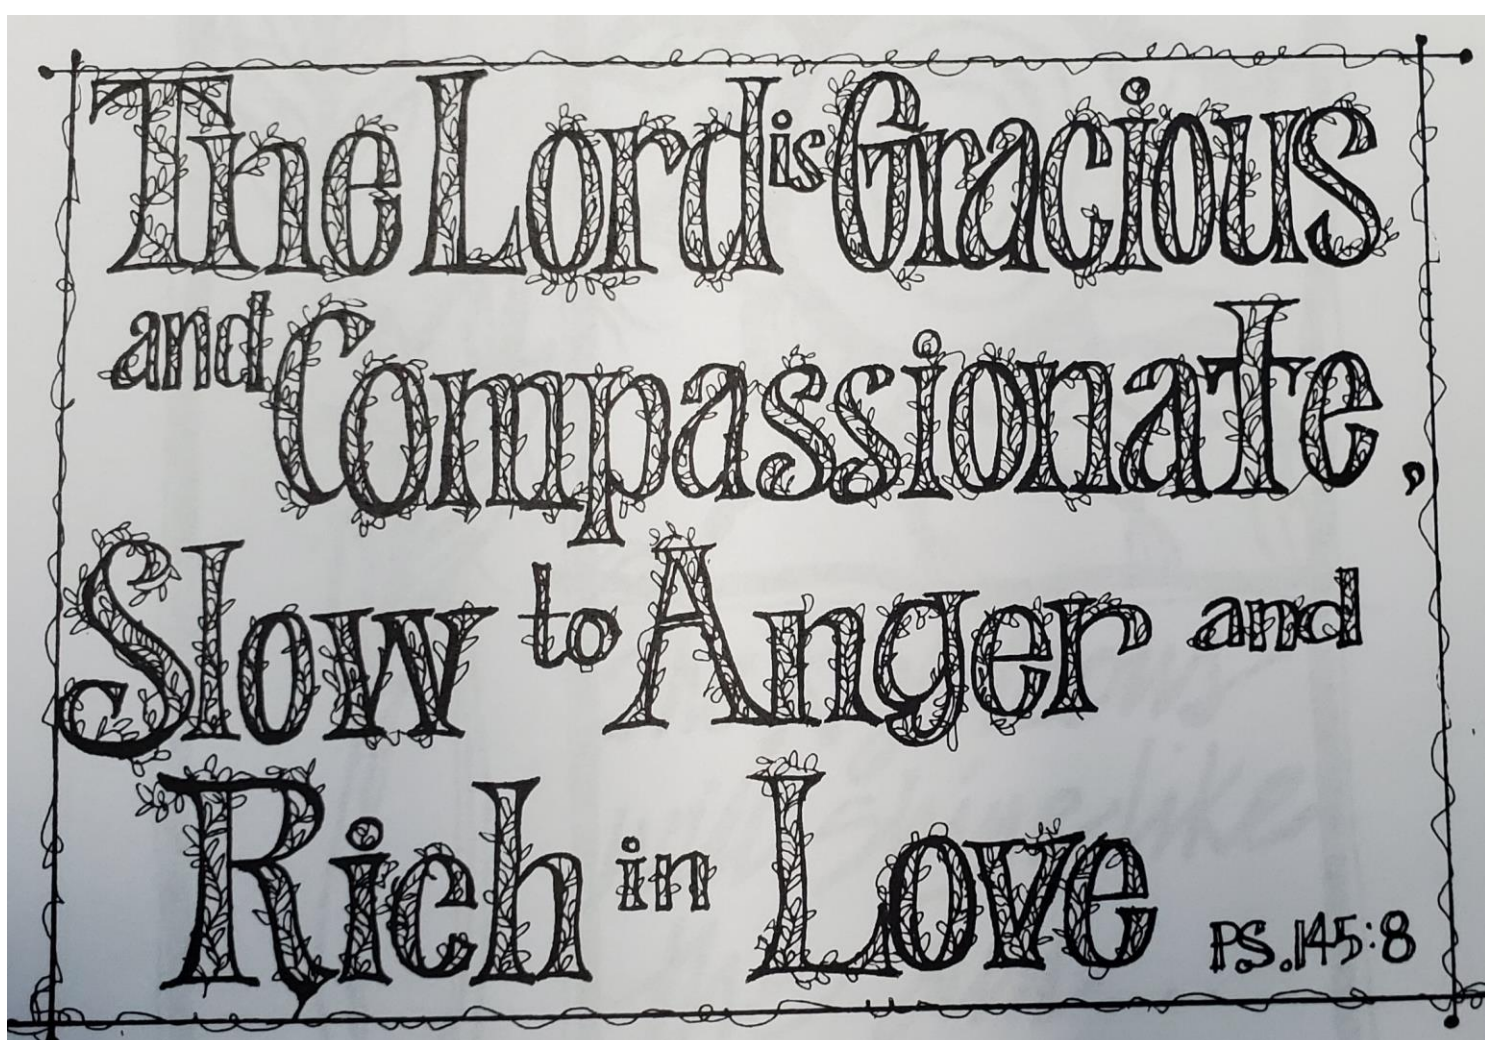 The Lord is Gracious
and Compassionate,
Slow to Anger and
Rich in Love
PS.145:8